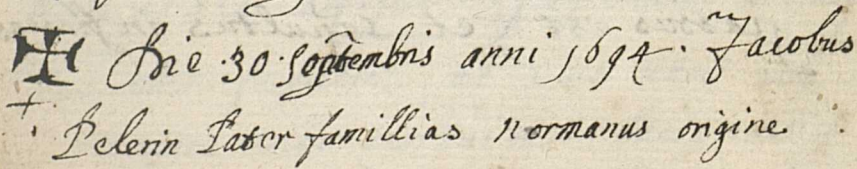 ✠ Die · 30 · septembris anni 1694 · Jacobus
+ Pelerin Pater famillias normanus origine